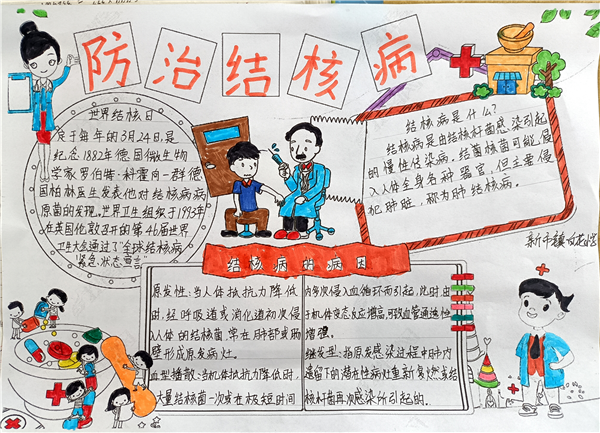 防治结核病
世界结核日
定于每年的3月24日,是
纪念1882年德国微生物
学家罗伯特·科霍向一群德
国柏林医生发表他对结核病病
原菌的发现。世界卫生组织于1993年
在英国伦敦召开的第46届世界
卫生大会通过了"全球结核病
紧急状态宣言"
结核病是什么?
结核病是由结核杆菌感染引起
的慢性传染病。结菌核菌可能侵
入人体全身各种器官,但主要侵
犯肺脏,称为肺结核病。
结核病的病因
原发性:当人体抵抗力降低
时,经呼吸道或消化道初次侵
入人体的结核菌,常在肺部或肠
壁形成原发病灶。
血型播散:当机体抵抗力降低时,
大量结核菌一次或在极短时间
内多次侵入血循环而引起,此时由
于机体变态反应增高,可致血管通透性
增强。
继发型:指原发感染过程中肺内
遗留下的潜在性病灶重新复燃或结
核杆菌再次感染所引起的。